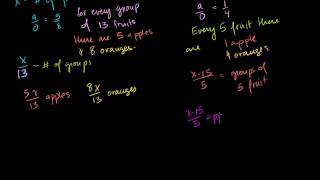 a/o = 5/8
for every group
of 13 fruits
there are 5 apples
& 8 oranges.
x/13 - # of groups
5x/13 apples 8x/13 oranges
a/o = 1/4
Every 5 fruit there
are 1 apple
4 oranges
x-15/5 = groups of
5 fruit
x-15/5 = ap